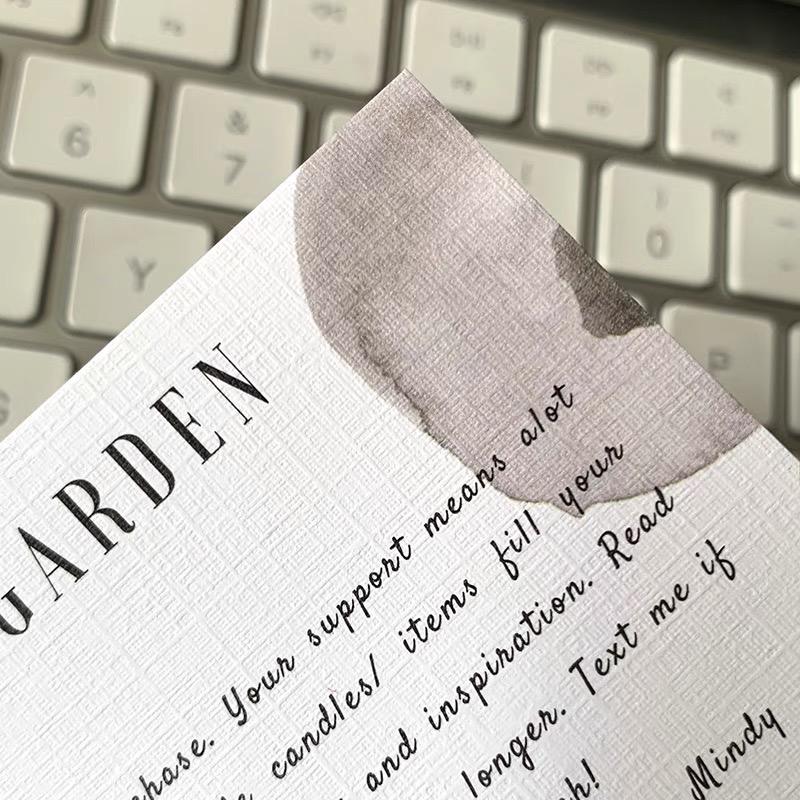 6
&
7
Y
)
0
P
GARDEN
chase. Your support means alot
candles/ items fill your
and inspiration. Read
longer. Text me if
Mindy